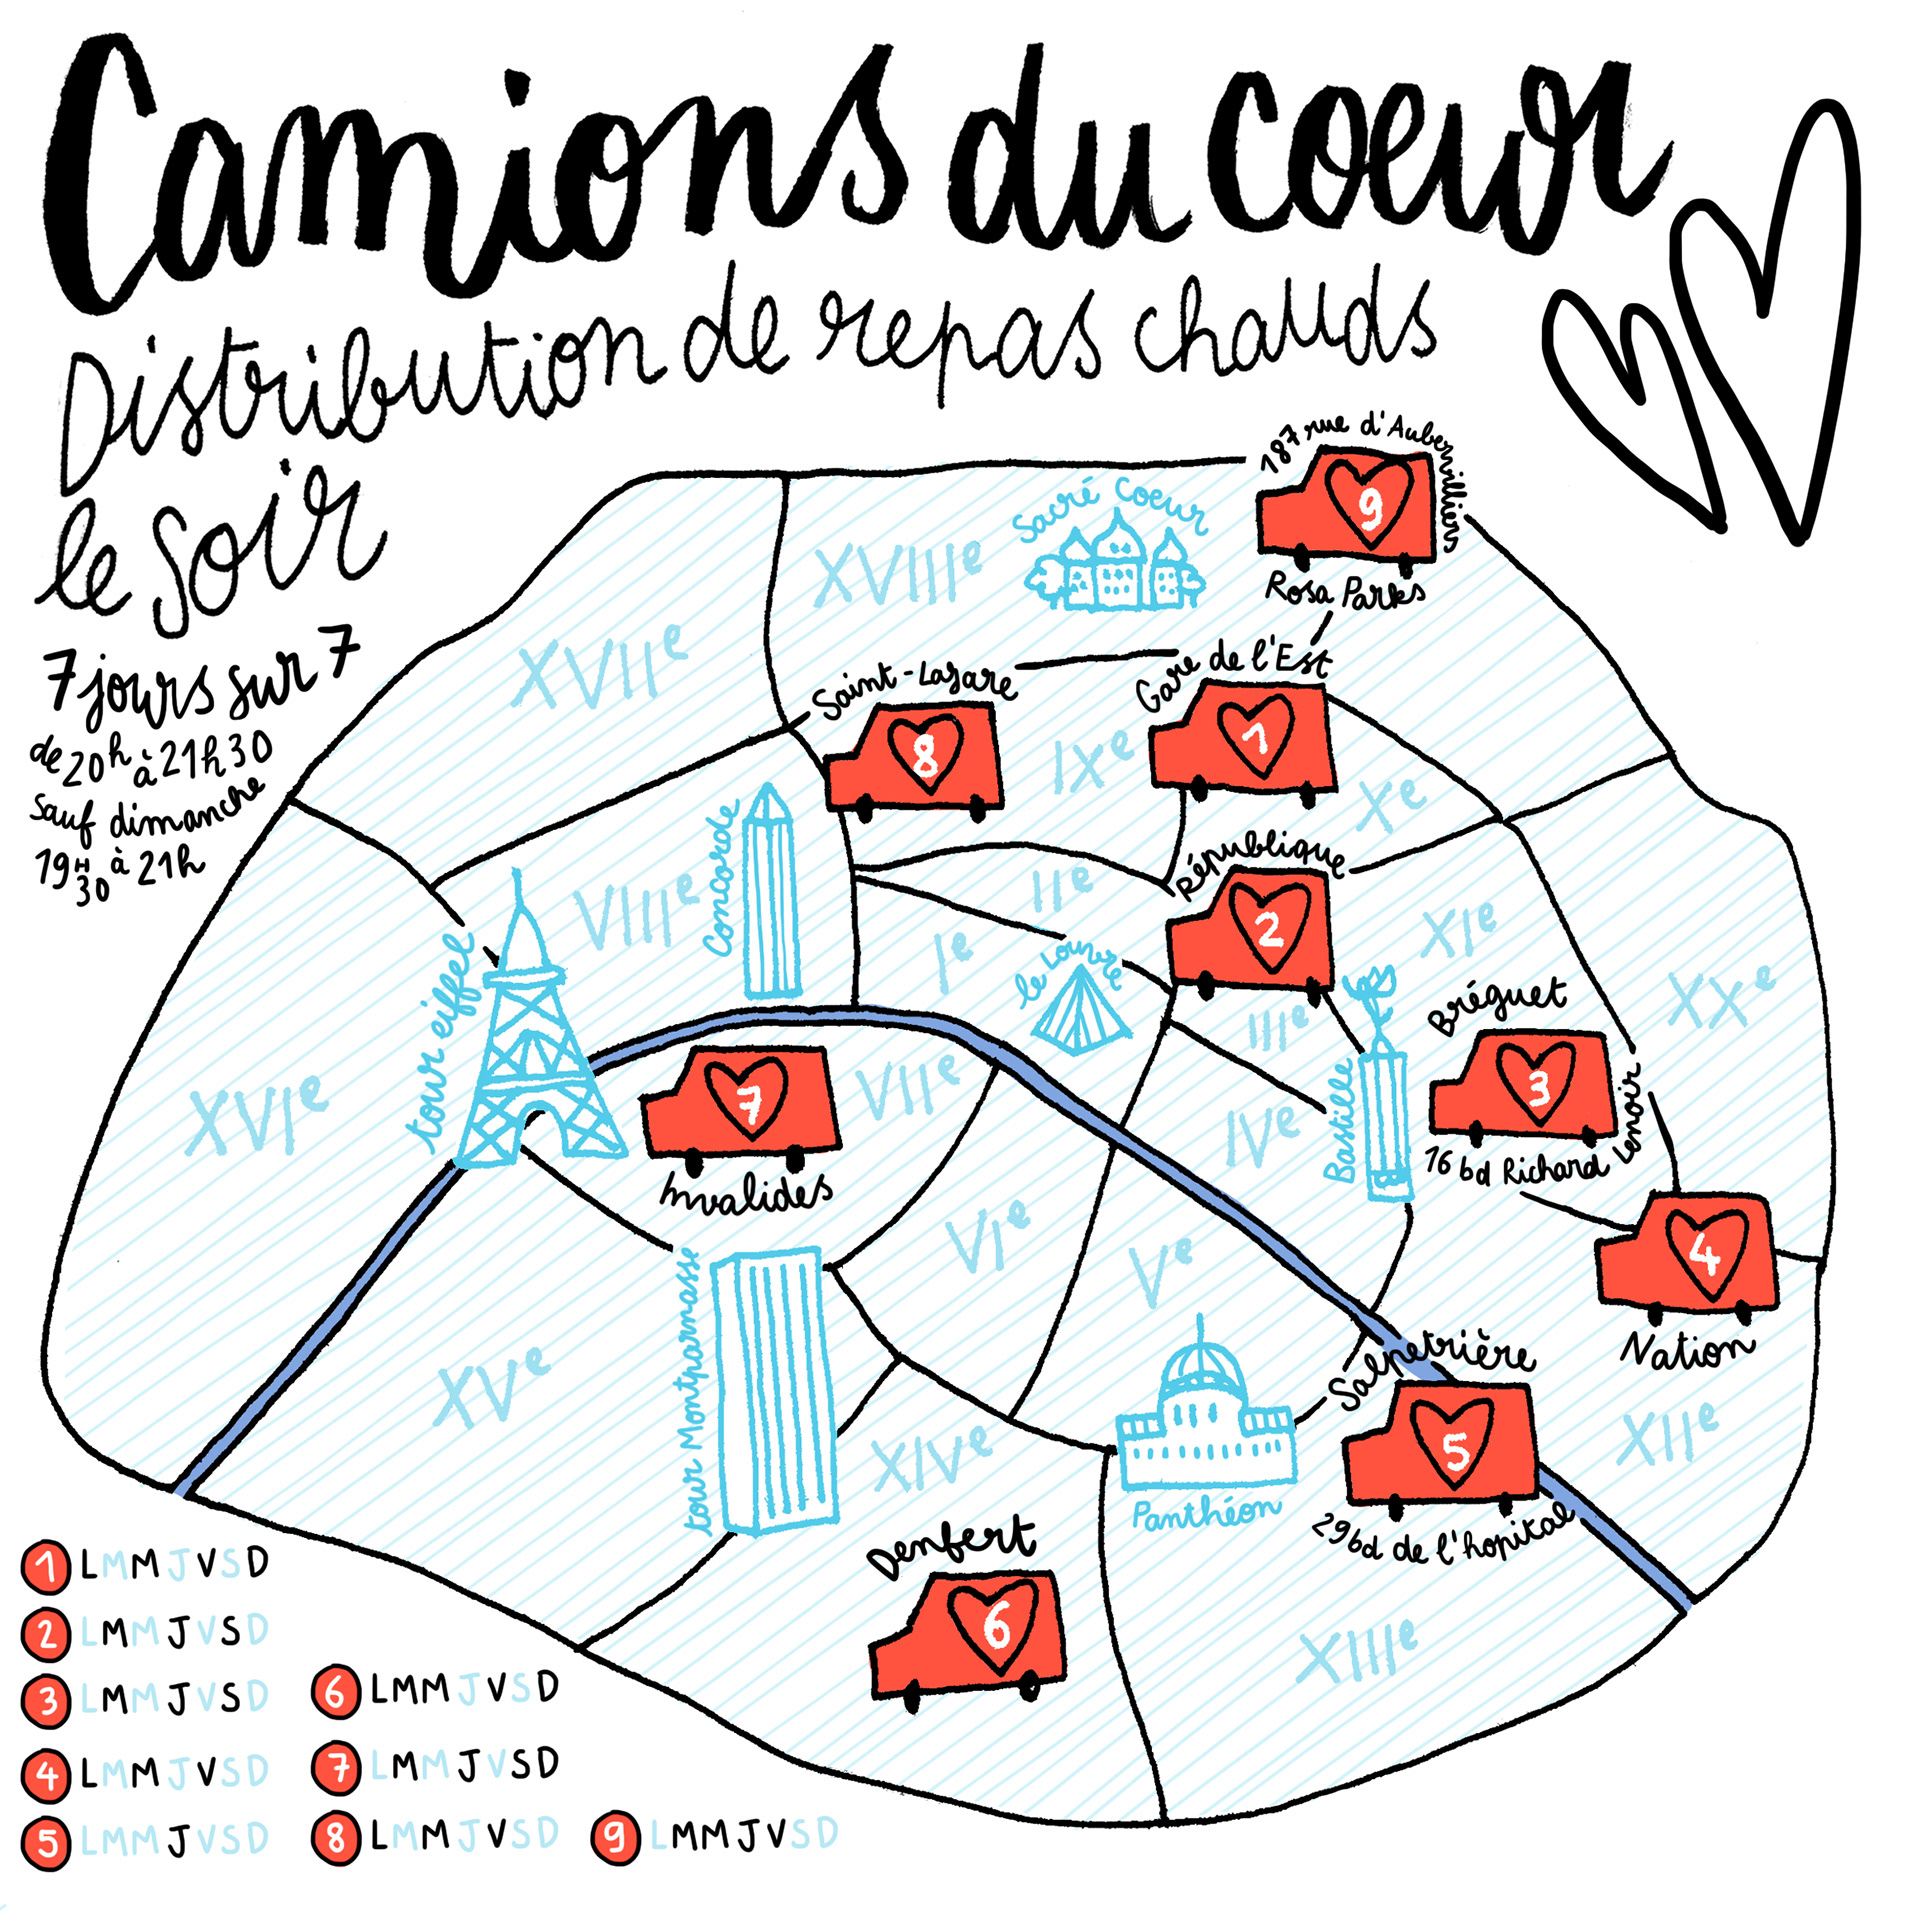 Camions du coeur
Distribution de repas chauds
le soir
7 jours sur 7
de 20h à 21h30
sauf dimanche
19H30 à 21h
187 rue d'Aubervilliers
9
Rosa Parks
Sacré Coeur
XVIIIe
XVIIe
Saint-Lazare
8
Gare de l'Est
1
IXe
Xe
République
2
Concorde
VIIIe
IIe
Ie
le Louvre
XIe
XXe
IIIe
Bréguet
3
16 bd Richard Lenoir
tour eiffel
XVIe
7
Invalides
VIIe
IVe
Bastille
4
Nation
VIe
Ve
tour Montparnasse
XVe
XIVe
Panthéon
Salpetrière
5
29 bd de l'hopital
XIIe
Denfert
6
XIIIe
1 LMMJVSD
2 LMMJVSD
3 LMMJVSD
4 LMMJVSD
5 LMMJVSD
6 LMMJVSD
7 LMMJVSD
8 LMMJVSD
9 LMMJVSD